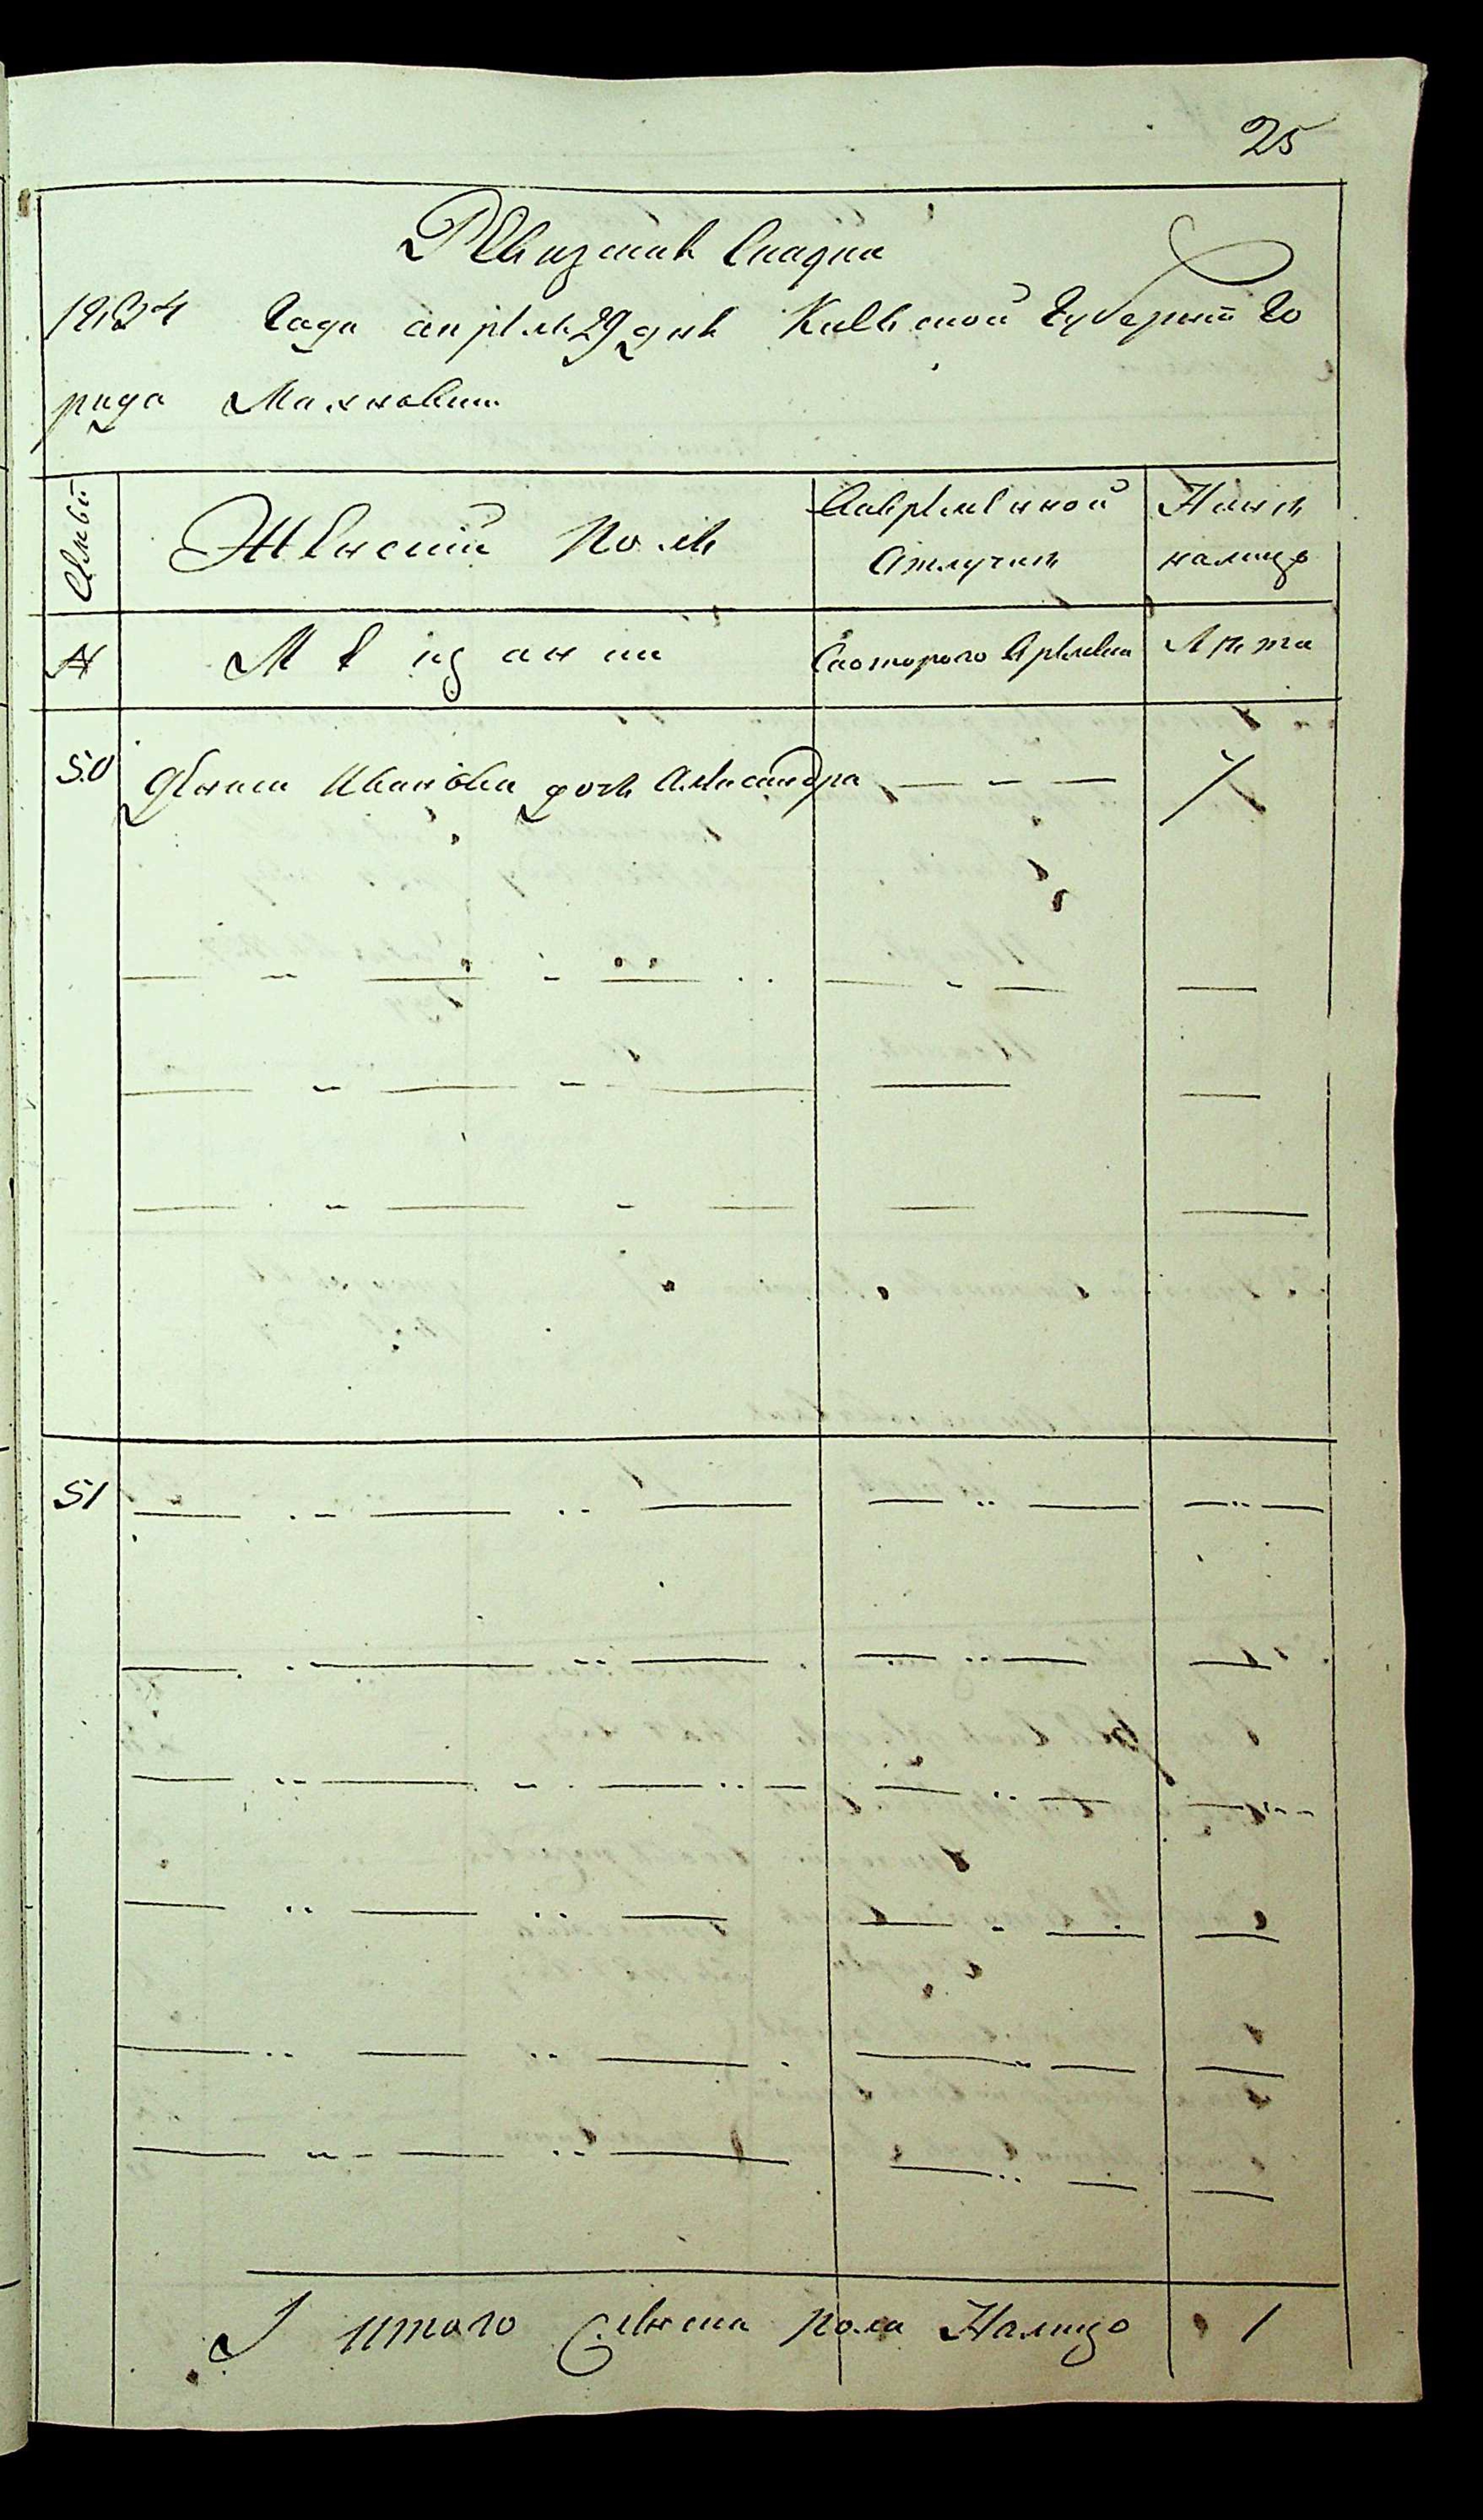 25
Ревизская Сказка
1834 Года апреля 29 дня Киевской Губернии Го
рода Махновки
Семьи
Женский Полъ
Вовременной
Отлучке
Ныне
налицо
№
Мещанки
Скоторого Времени
Лета
50 Дениса Иванова дочь Александра — — — 7
51
И итого Женска пола Налицо 1